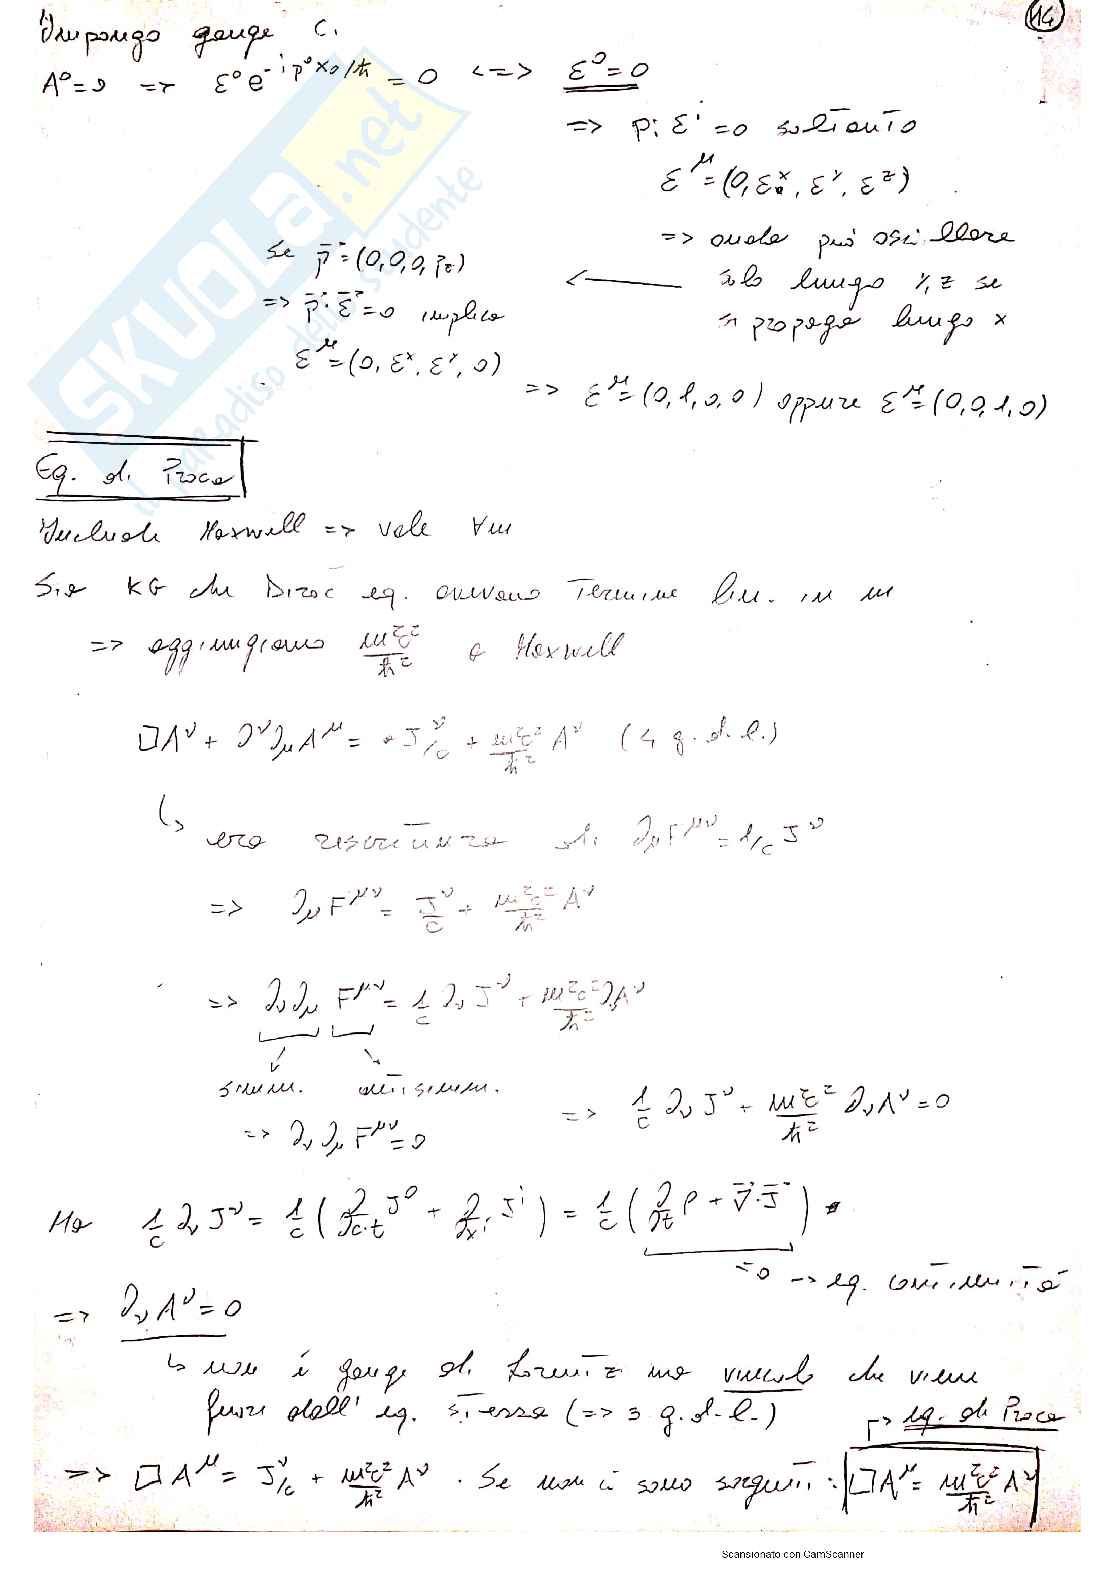 14
Impongo gauge C.
A⁰=0 => ε⁰e^{-ip⁰x₀/ħ} = 0 <=> ε⁰=0
=> pᵢεⁱ=0 soltanto
ε^μ=(0,εˣ,εʸ,εᶻ)
=> onda può oscillare
solo lungo y,z se
si propaga lungo x
Se p⃗=(0,0,0,p_z)
=> p⃗·ε⃗=0 implica
ε^μ=(0,εˣ,εʸ,0)
=> ε^μ=(0,1,0,0) oppure ε^μ=(0,0,1,0)
Eq. di Proca
Include Maxwell => vale ∀m
Sia KG che Dirac eq. avevano termine lin. in m
=> aggiungiamo m²c²/ħ² a Maxwell
□A^ν + ∂^ν∂_μA^μ = J^ν/c + m²c²/ħ² A^ν (4 g.d.l.)
↳ era riscrittura di ∂_μF^{μν}=1/c J^ν
=> ∂_μF^{μν} = J^ν/c + m²c²/ħ² A^ν
=> ∂_ν∂_μ F^{μν} = 1/c ∂_νJ^ν + m²c²/ħ² ∂_νA^ν
simm. antisimm.
=> ∂_ν∂_μF^{μν}=0
=> 1/c ∂_νJ^ν + m²c²/ħ² ∂_νA^ν=0
Ma 1/c ∂_νJ^ν = 1/c (∂/∂c·t J⁰ + ∂/∂xⁱ Jⁱ) = 1/c (∂/∂t ρ + ∇⃗·J⃗)
=0 → eq. continuità
=> ∂_νA^ν=0
↳ non è gauge di Lorentz ma vincolo che viene
fuori dall' eq. stessa (=> 3 g.d.l.)
↱ eq. di Proca
=> □A^μ = J^ν/c + m²c²/ħ² A^ν. Se non ci sono sorgenti: □A^μ = m²c²/ħ² A^ν
SKUOLA.net
il paradiso dello studente
Scansionato con CamScanner